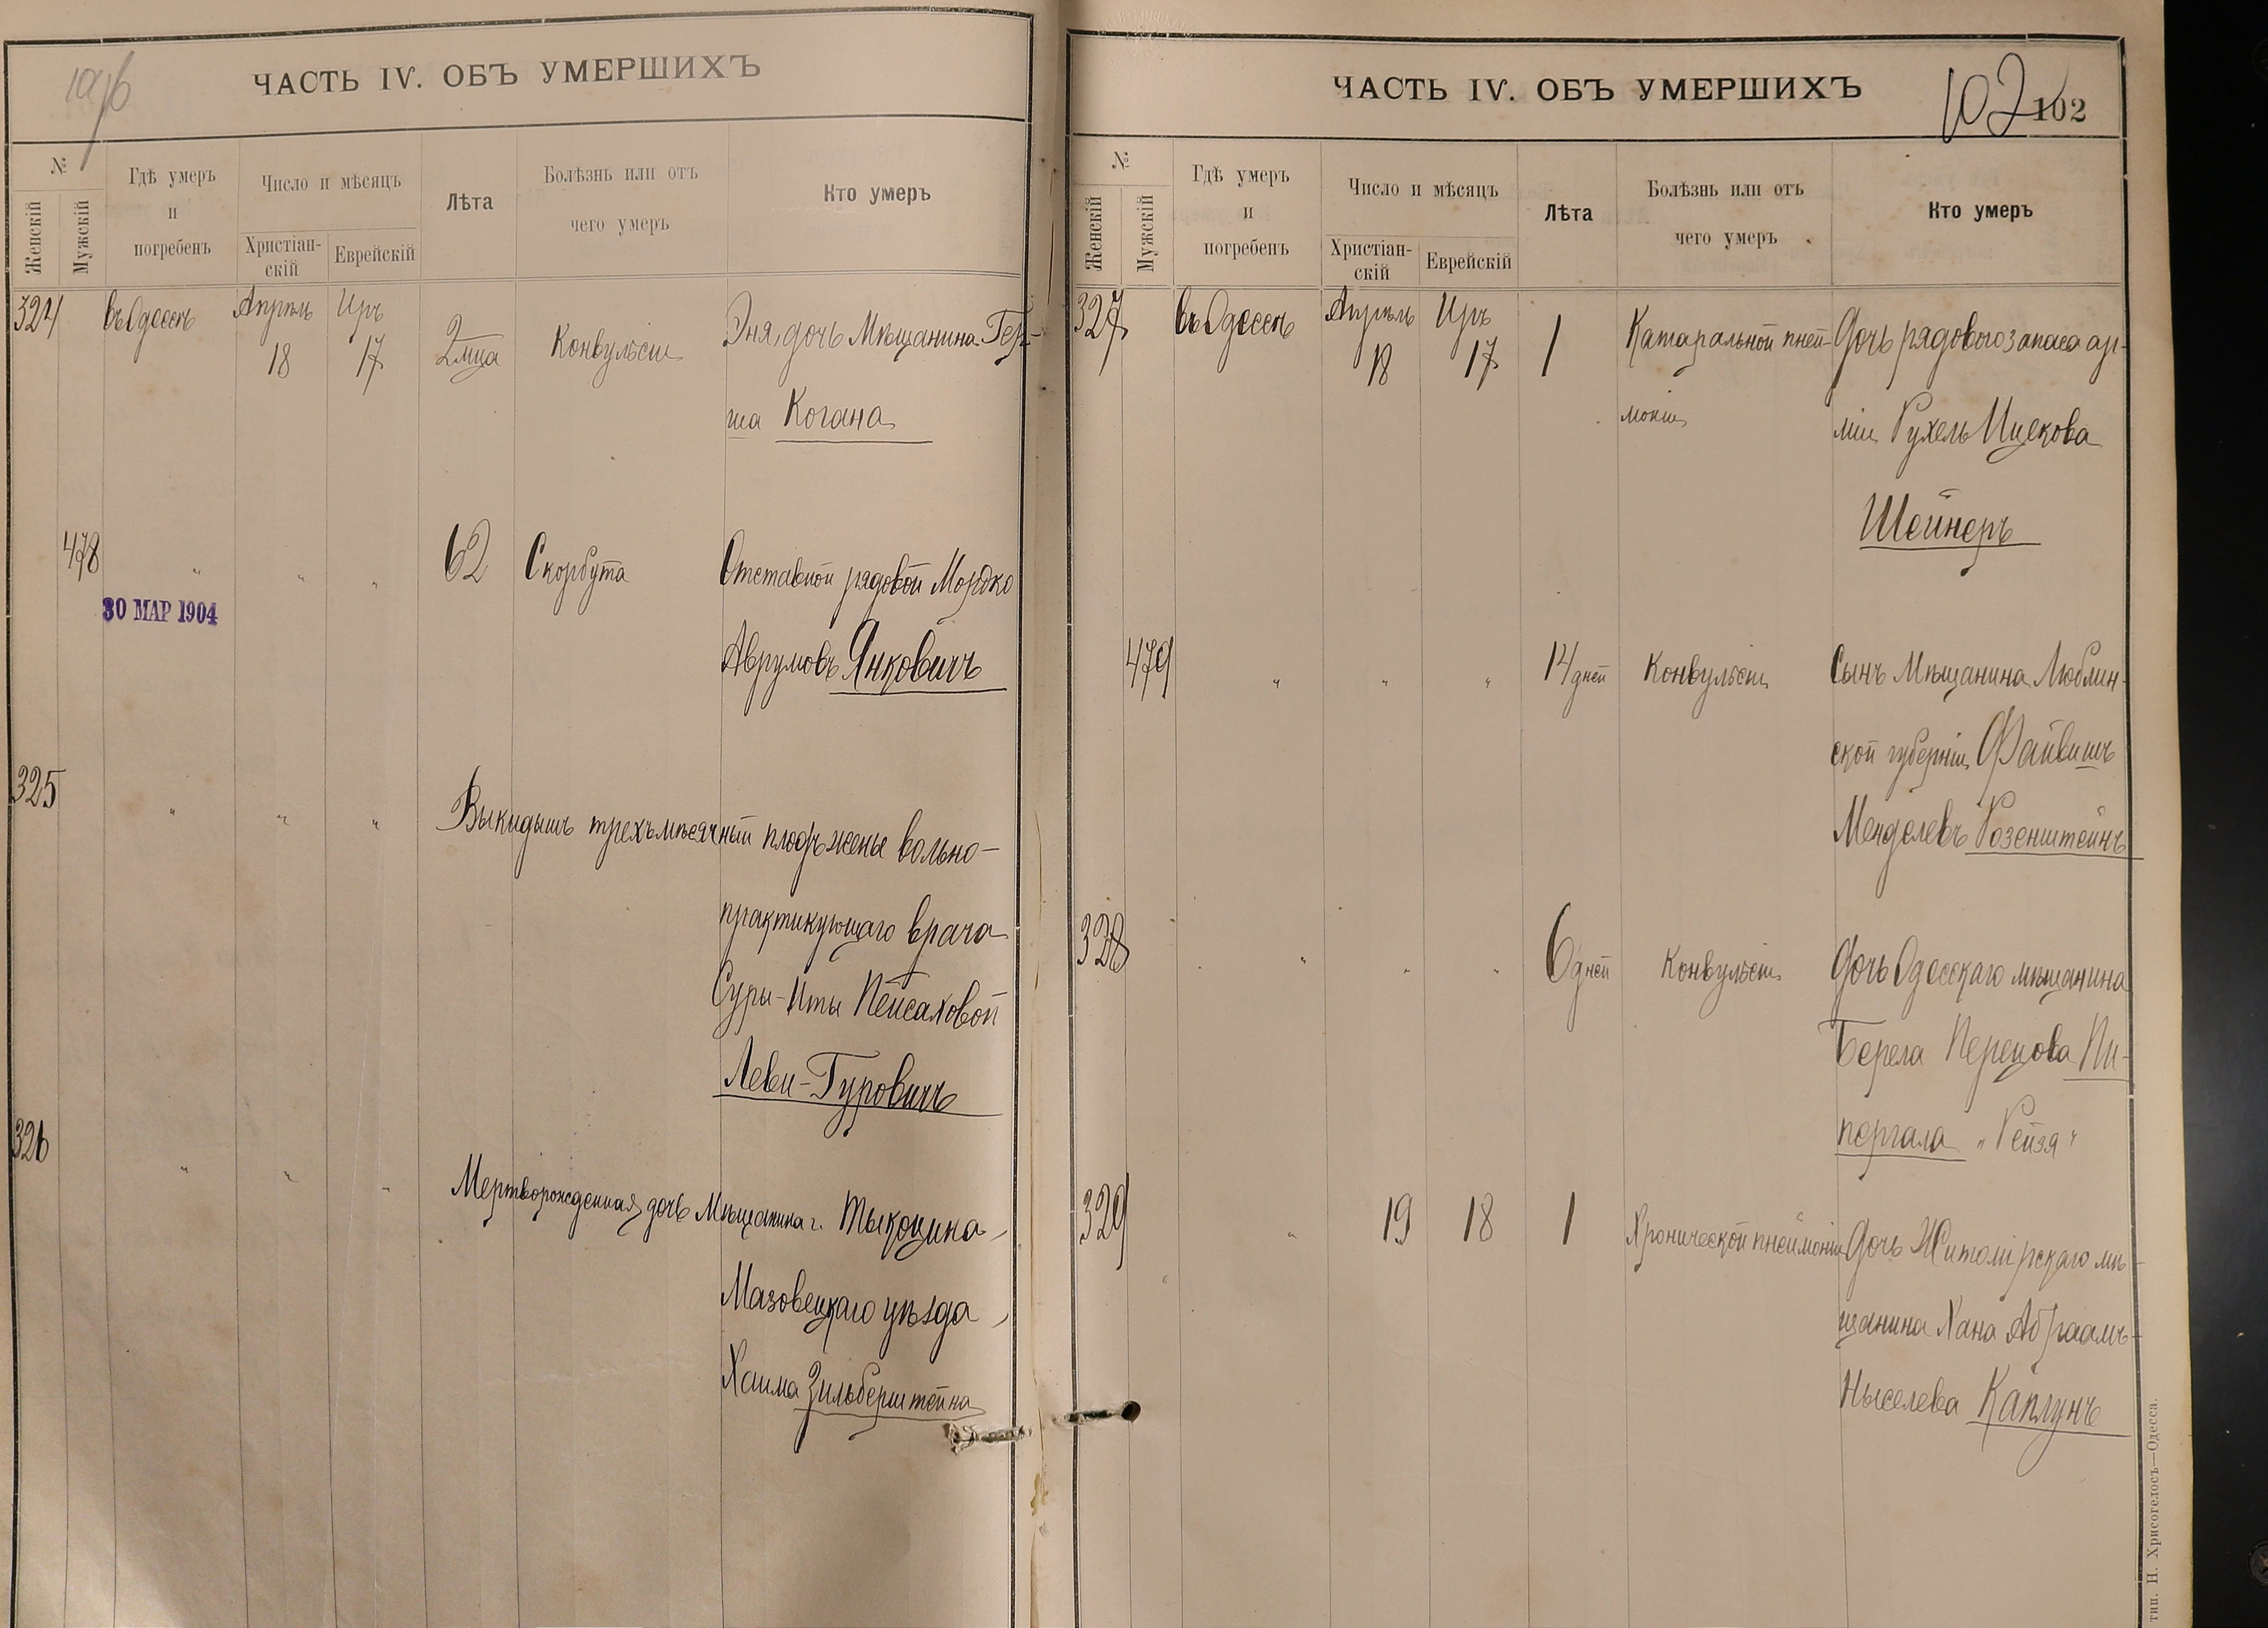 1916
ЧАСТЬ IV. ОБЪ УМЕРШИХЪ
№
Женскій
Мужскій
Гдѣ умеръ
и
погребенъ
Число и мѣсяцъ
Христіан-
скій
Еврейскій
Лѣта
Болѣзнь или отъ
чего умеръ
Кто умеръ
324 въ Одессѣ Апрѣль Иръ
18 17 2 2 мца Конвульсіи Эня, дочь Мѣщанина Гер-
ша Когана
478 " " " 62 Скорбута Отставной рядовой Мордко
30 МАР 1904
Аврумовъ Янковичъ
325 " " " Выкидышъ трехъмѣсячный плодъ жены вольно-
практикующаго врача
Суры-Иты Пейсаховой
Леви-Гуровичъ
326 " " " Мертворожденная дочь Мѣщанина г. Тыкоцина,
Мазовецкаго уѣзда,
Хаима Зильберштейна
ЧАСТЬ IV. ОБЪ УМЕРШИХЪ
102 102
№
Женскій
Мужскій
Гдѣ умеръ
и
погребенъ
Число и мѣсяцъ
Христіан-
скій
Еврейскій
Лѣта
Болѣзнь или отъ
чего умеръ
Кто умеръ
327 въ Одессѣ Апрѣль Иръ
18 17 1 Катаральной пней- Дочь рядового запаса ар-
моніи міи Рухель Ицекова
Шейнеръ
479 " " " 14 дней Конвульсіи Сынъ Мѣщанина Люблин-
ской губерніи, Файвишъ
Менделевъ Розенштейнъ
328 " " " 6 дней Конвульсіи Дочь Одесскаго мѣщанина
Берела Перецова Пи-
пергала "Рейзя"
329 " 19 18 1 Хронической пнеймоніи Дочь Житомірскаго мѣ-
щанина Хана Абраамъ-
Ныселева Каплунъ
тип. Н. Хрисогелосъ—Одесса.